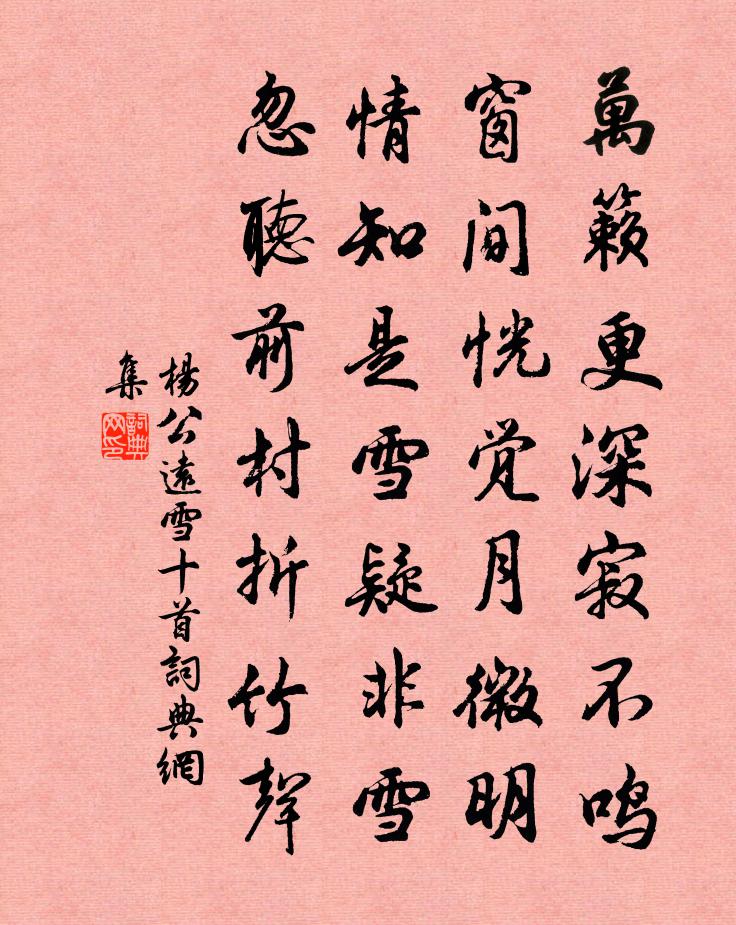 萬籟更深寂不鳴
窗间恍觉月微明
情知是雪疑非雪
忽聽前村折竹聲
楊公遠雪十首詞典網
集
詞典网印